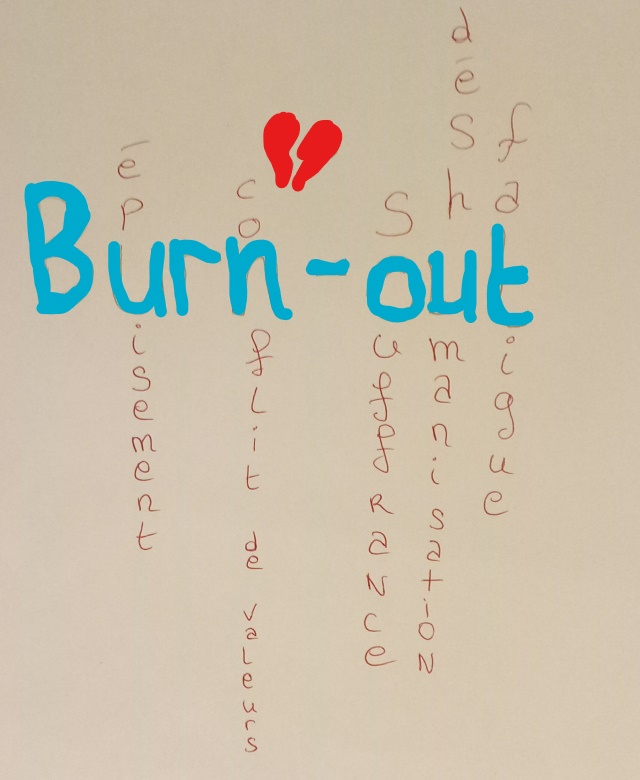 Burn-out
épuisement
conflit de valeurs
SouffRaNCe
déshumanisatioN
fatigue